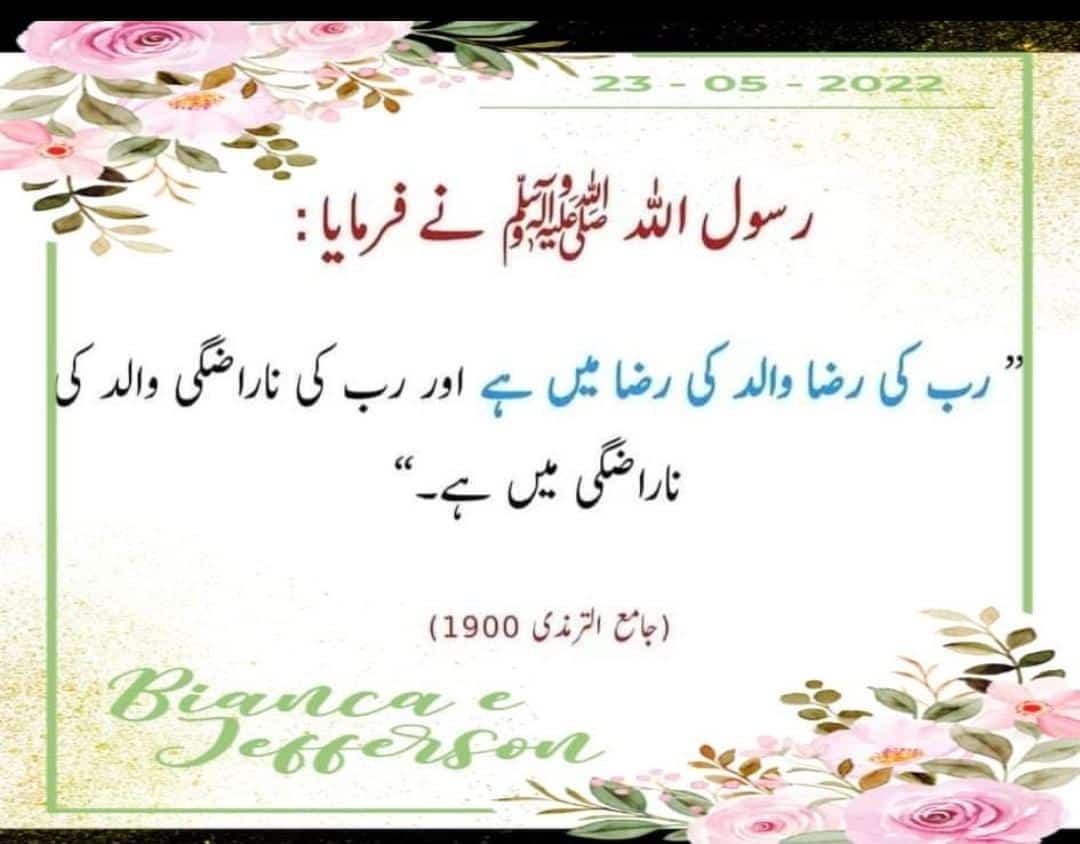 23 - 05 - 2022
رسول اللہ ﷺ نے فرمایا :
” رب کی رضا والد کی رضا میں ہے اور رب کی ناراضگی والد کی
ناراضگی میں ہے۔“
(جامع الترمذی 1900)
Bianca e
Jefferson